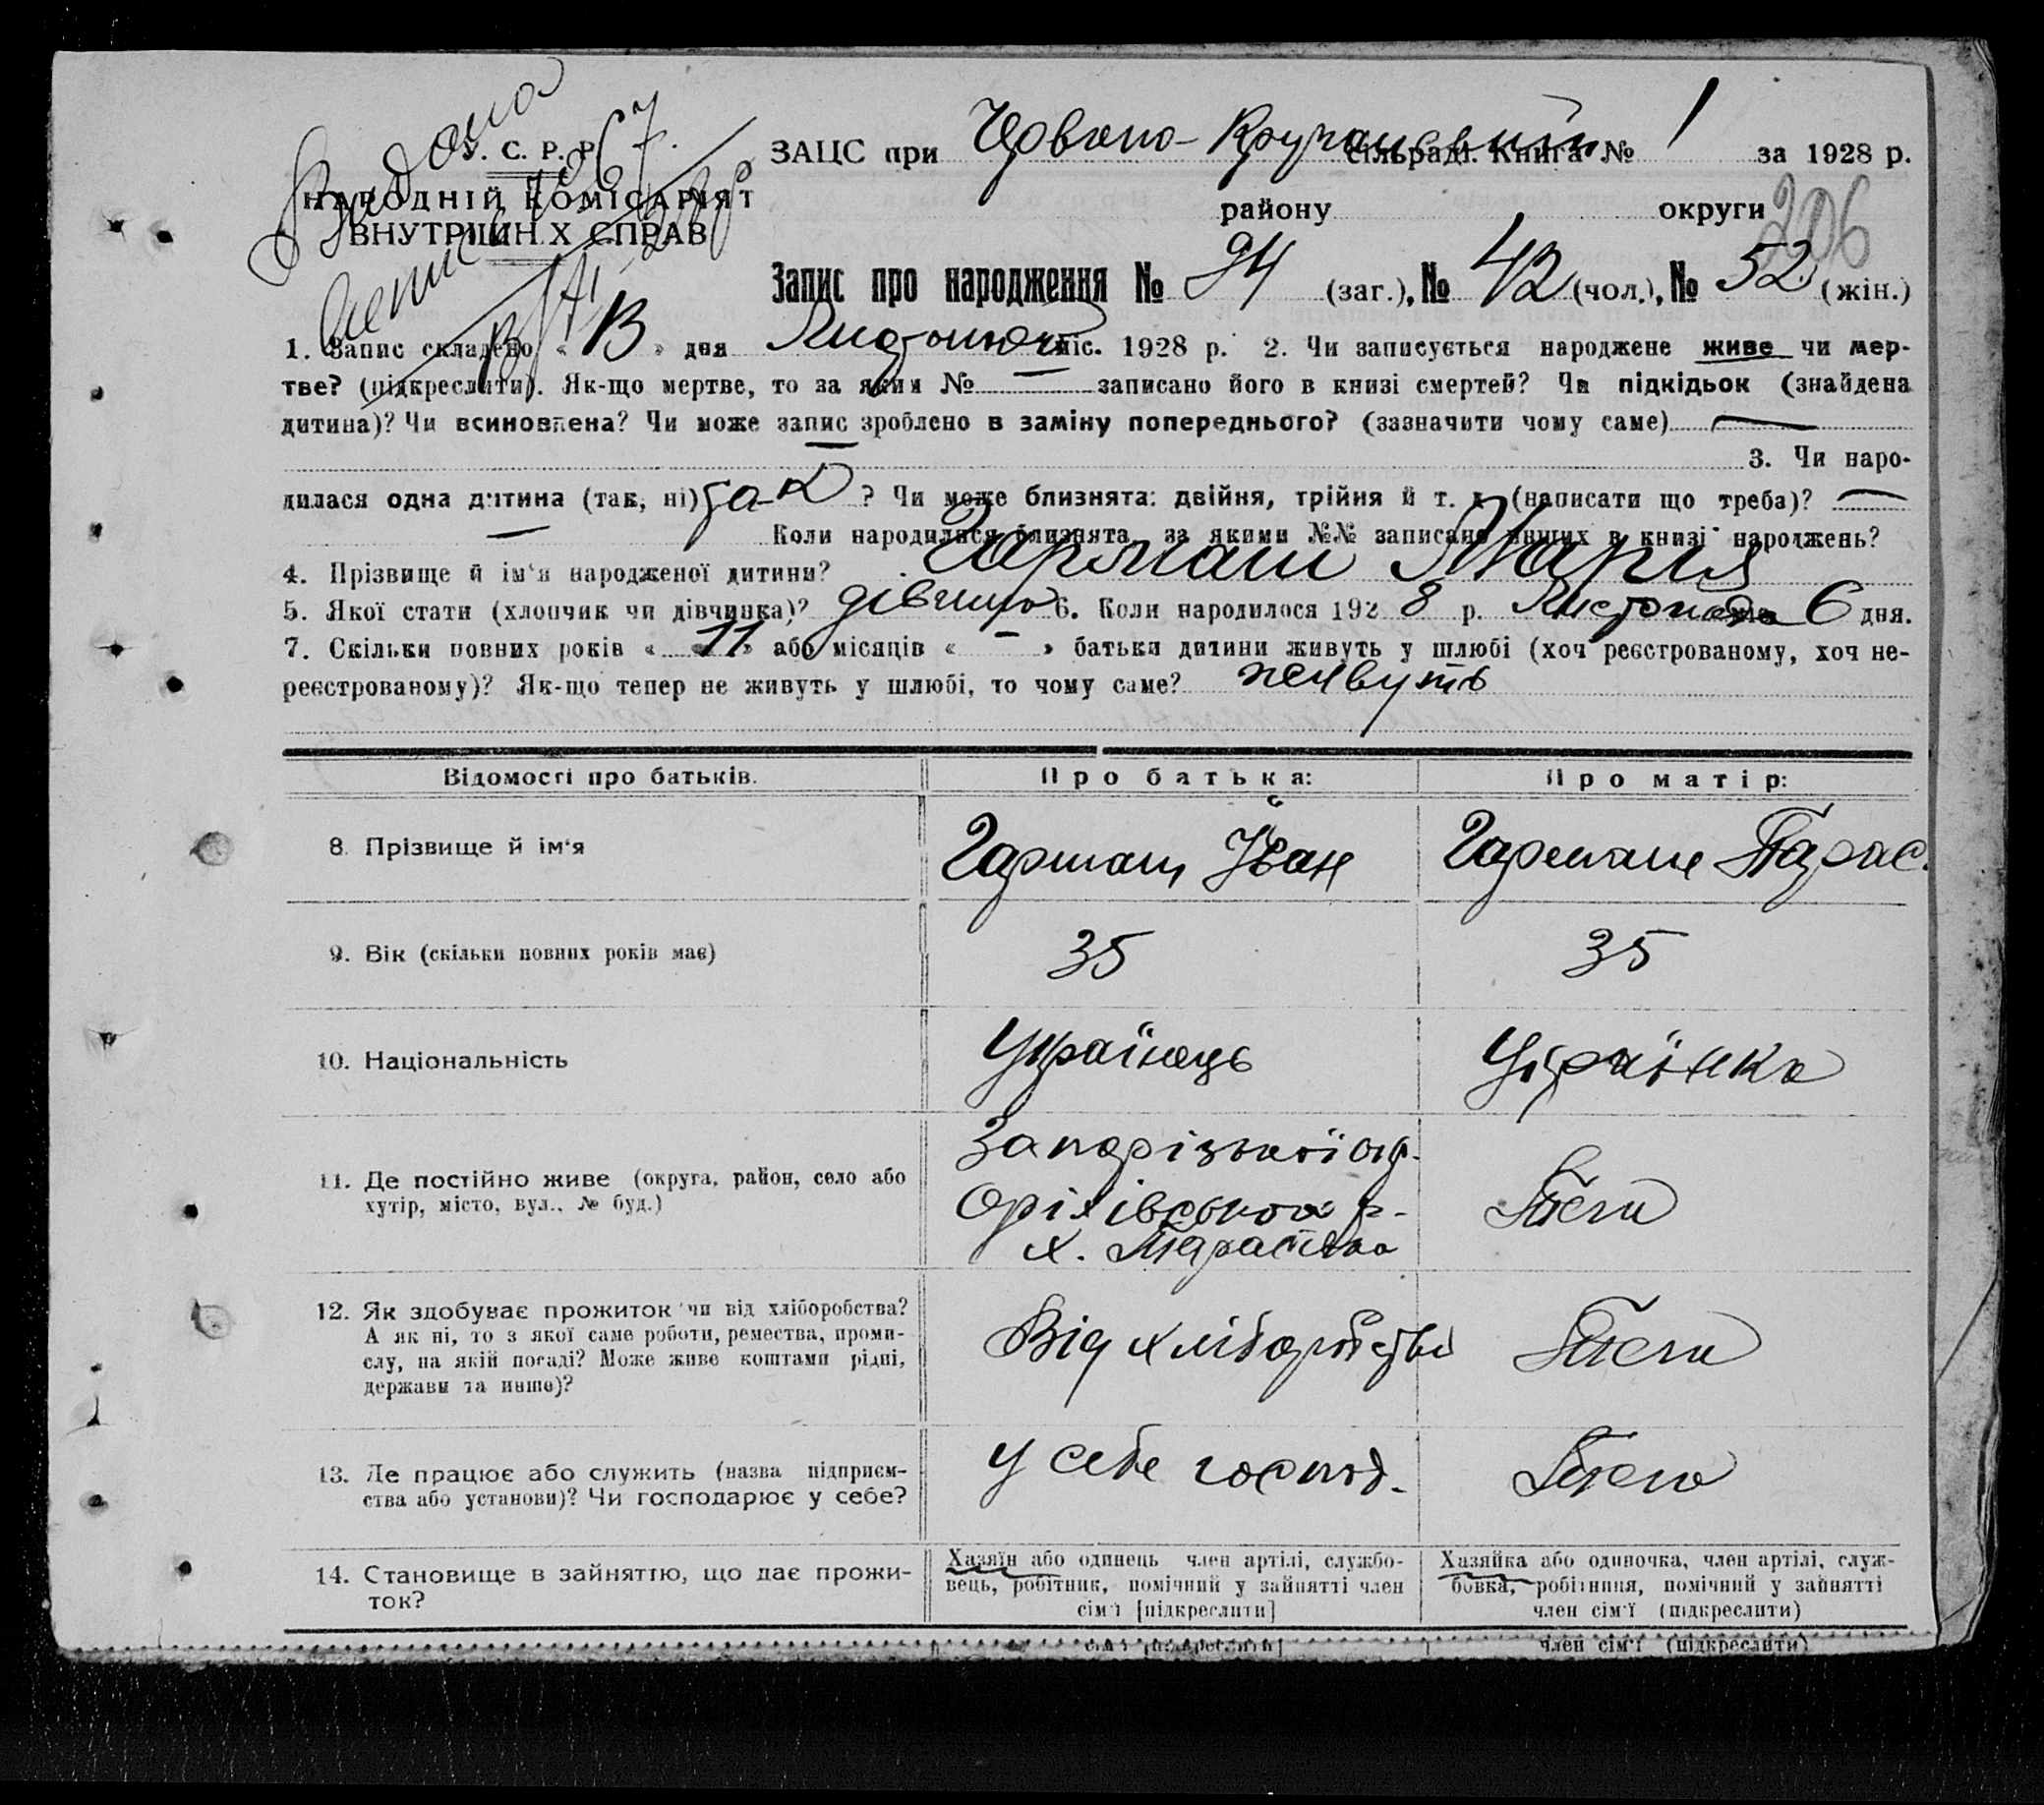 Видана
У. С. Р. Р.
НАРОДНІЙ КОМІСАРІЯТ
ВНУТРІШНІХ СПРАВ
ЗАЦС при Червоно- сільраді. Книга № 1 за 1928 р.
району округи
206
Запис про народження № 94 (заг.), № 42 (чол.), № 52 (жін.)
1. Запис складено « » дня міс. 1928 р. 2. Чи записується народжене живе чи мер-
тве? (підкреслити). Як-що мертве, то за яким № — записано його в книзі смертей? Чи підкідьок (знайдена
дитина)? Чи всиновлена? Чи може запис зроблено в заміну попереднього? (зазначити чому саме) —
3. Чи наро-
дилася одна дитина (так, ні) так ? Чи може близнята: двійня, трійня й т. д. (написати що треба)? —
— Коли народилися близнята, за якими №№ записано инших в книзі народжень?
4. Прізвище й ім'я народженої дитини? Гармаш Мария
5. Якої стати (хлопчик чи дівчинка)? дівчина 6. Коли народилося 1928 р. Листопада 6 дня.
7. Скільки повних років « 11 » або місяців « — » батьки дитини живуть у шлюбі (хоч реєстрованому, хоч не-
реєстрованому)? Як-що тепер не живуть у шлюбі, то чому саме? живуть
Відомості про батьків. Про батька: Про матір:
8. Прізвище й ім'я Гармаш Іван Гармаш Парас.
9. Вік (скільки повних років має) 35 35
10. Національність Українець Українка
11. Де постійно живе (округа, район, село або
хутір, місто, вул., № буд.)
Запорізької окр.
Оріхівського р-
х.
Теж
12. Як здобуває прожиток чи від хліборобства?
А як ні, то з якої саме роботи, ремества, проми-
слу, на якій посаді? Може живе коштами рідні,
держави та инше)?
Від хліборобства Теж
13. Де працює або служить (назва підприєм-
ства або установи)? Чи господарює у себе?
У себе господ. Теж
14. Становище в зайняттю, що дає прожи-
ток?
Хазяїн або одинець член артілі, службо-
вець, робітник, помічний у зайнятті член
сім'ї [підкреслити]
Хазяйка або одиночка, член артілі, служ-
бовка, робітниця, помічний у зайнятті
член сім'ї (підкреслити)
сім'ї [підкреслити] член сім'ї (підкреслити)